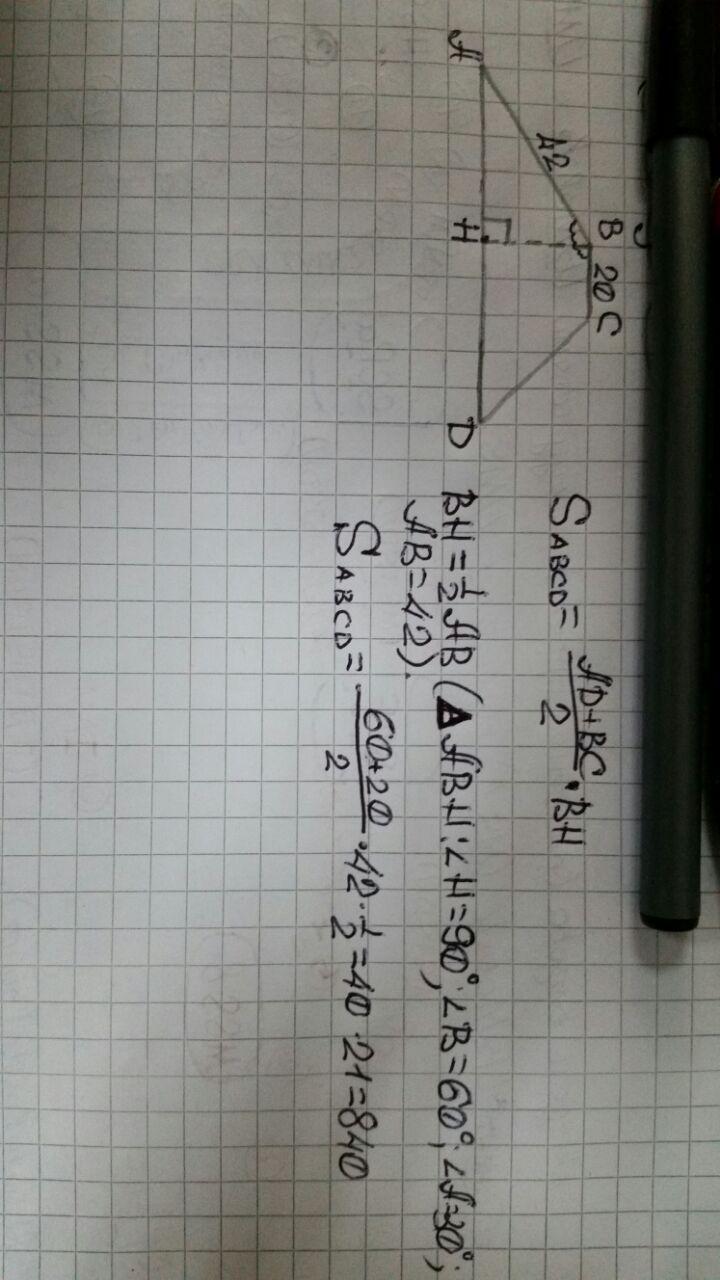 B 20 C
42
A H D
S ABCD = (AD+BC)/2 · BH
BH = 1/2 AB (△ABH: ∠H=90°; ∠B=60°; ∠A=30°;
AB=42).
S ABCD = (60+20)/2 · 42 · 1/2 = 40 · 21 = 840